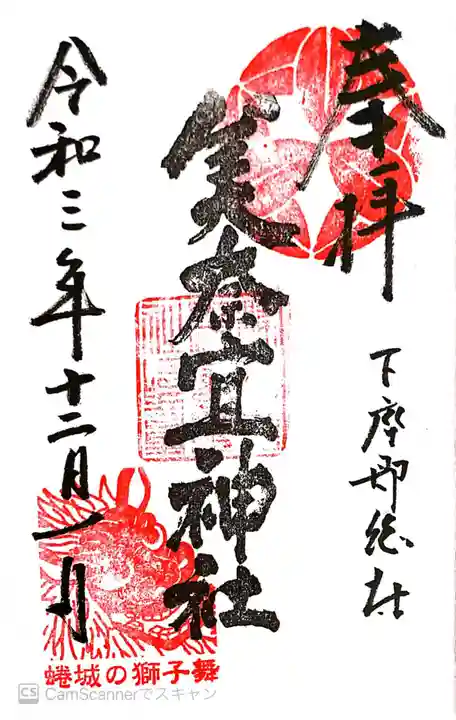 奉拝
下座郡総社
美奈宜神社
令和三年十二月一日
蜷城の獅子舞
CS CamScannerでスキャン